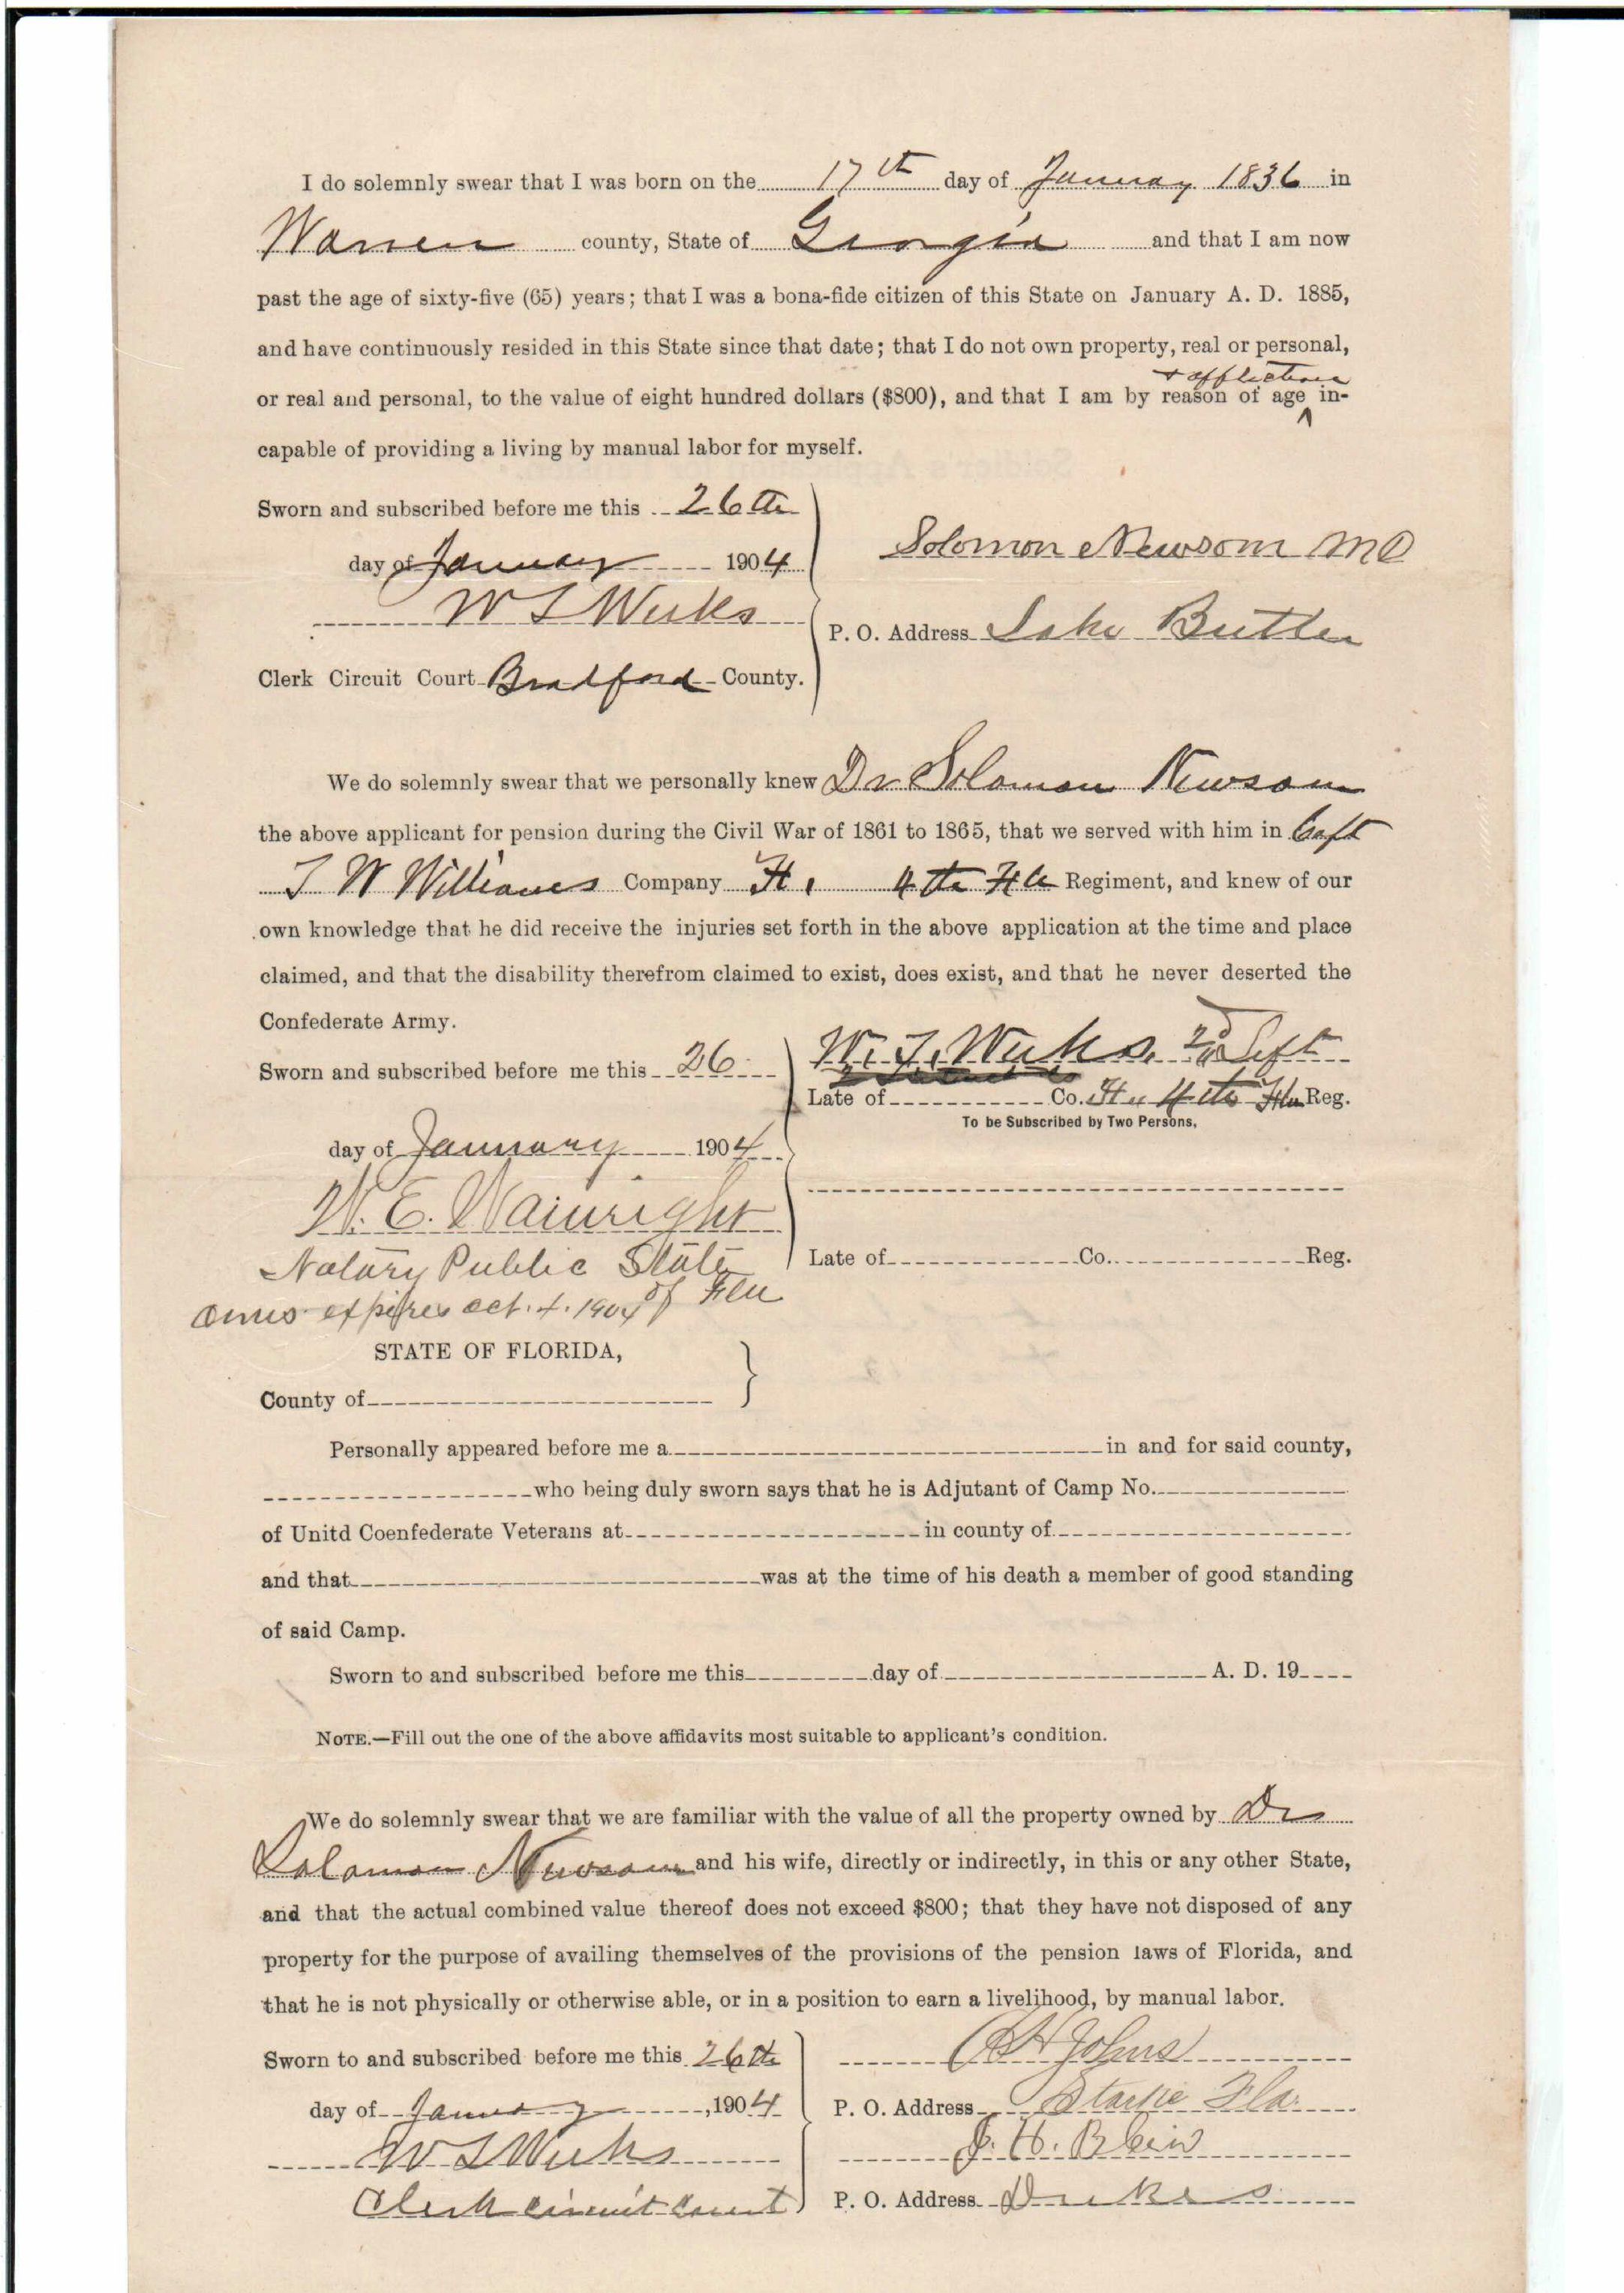 I do solemnly swear that I was born on the 17th day of January 1836 in
Warren county, State of Georgia and that I am now
past the age of sixty-five (65) years; that I was a bona-fide citizen of this State on January A. D. 1885,
and have continuously resided in this State since that date; that I do not own property, real or personal,
+ affliction
or real and personal, to the value of eight hundred dollars ($800), and that I am by reason of age ^ in-
capable of providing a living by manual labor for myself.
Sworn and subscribed before me this 26th
day of January 1904
Solomon Newsom MD
W S Weeks
P. O. Address Lake Butler
Clerk Circuit Court Bradford County.
We do solemnly swear that we personally knew Dr Solomon Newsom
the above applicant for pension during the Civil War of 1861 to 1865, that we served with him in Capt
T W Williams Company H, 4th Fla Regiment, and knew of our
own knowledge that he did receive the injuries set forth in the above application at the time and place
claimed, and that the disability therefrom claimed to exist, does exist, and that he never deserted the
Confederate Army.
W. T. Weeks, 2d
Sworn and subscribed before me this 26
Late of Co. H 4th Fla Reg.
To be Subscribed by Two Persons,
day of January 1904
W. E. Wainright
Notary Public State
of Fla
Late of Co. Reg.
expires oct. 4. 1904
STATE OF FLORIDA,
County of
Personally appeared before me a in and for said county,
who being duly sworn says that he is Adjutant of Camp No.
of Unitd Coenfederate Veterans at in county of
and that was at the time of his death a member of good standing
of said Camp.
Sworn to and subscribed before me this day of A. D. 19
NOTE.—Fill out the one of the above affidavits most suitable to applicant's condition.
We do solemnly swear that we are familiar with the value of all the property owned by Dr
Solomon Newsom and his wife, directly or indirectly, in this or any other State,
and that the actual combined value thereof does not exceed $800; that they have not disposed of any
property for the purpose of availing themselves of the provisions of the pension laws of Florida, and
that he is not physically or otherwise able, or in a position to earn a livelihood, by manual labor.
Sworn to and subscribed before me this 26th
Johns
day of January, 1904
P. O. Address Starke Fla.
W S Weeks
J. H.
Clerk circuit court
P. O. Address Dukes